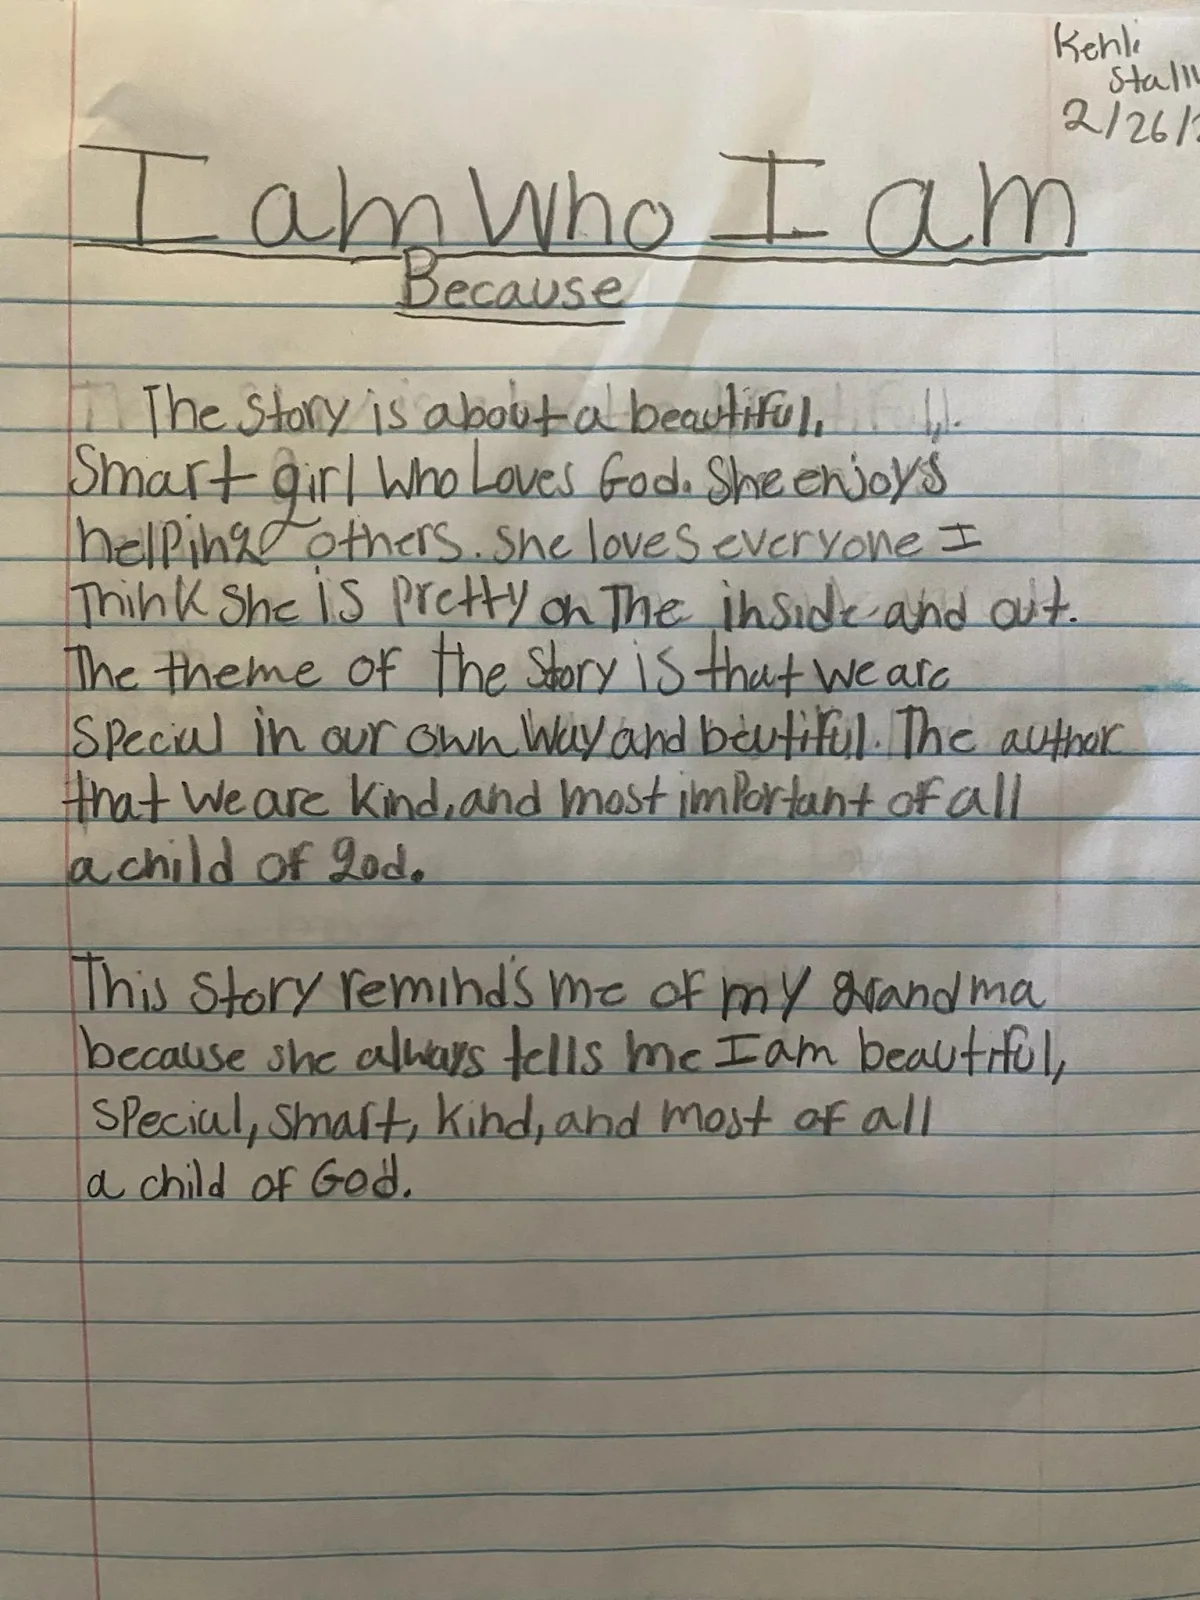 Kenli
2/26/
I am Who I am
Because
The Story is about a beautiful,
Smart girl Who Loves God. She enjoys
helping others. She loves everyone I
Think She is Pretty on The inside and out.
The theme of the Story is that we are
Special in our own Way and beutiful. The author
that we are kind, and most important of all
a child of god.
This Story remind's me of my grandma
because she always tells me I am beautiful,
Special, Smart, kind, and most of all
a child of God.